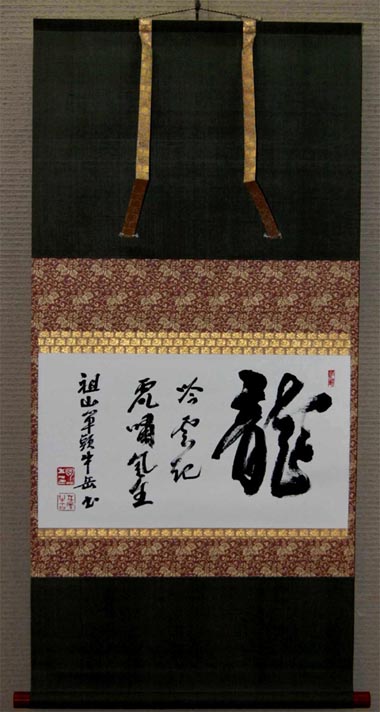 龍
吟雲起
虎嘯風生
祖山単頭牛岳書